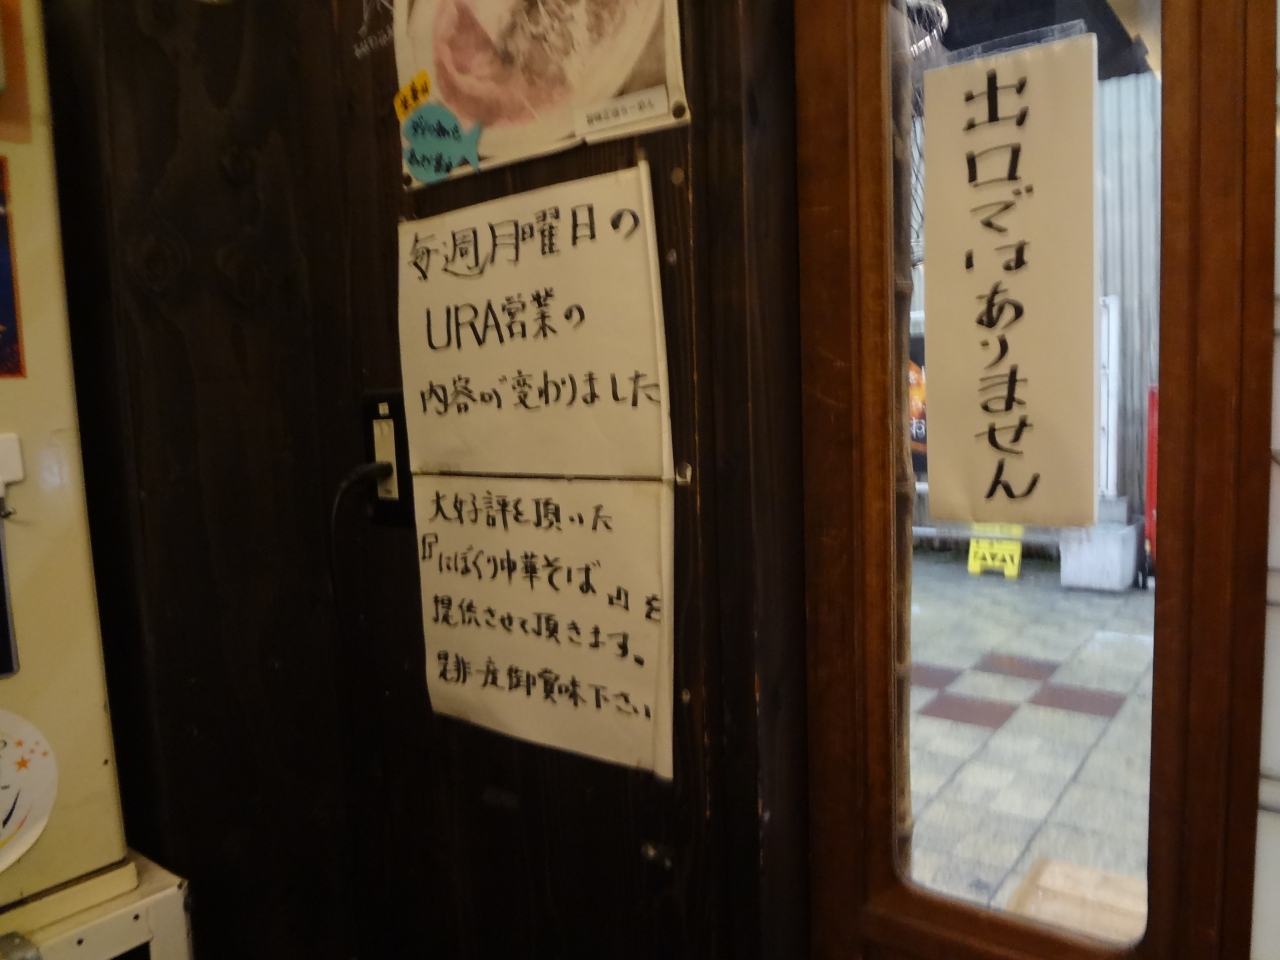 毎週月曜日の
URA営業の
内容が変わりました
大好評を頂いた
『にぼくり中華そば』を
提供させて頂きます。
是非一度御賞味下さい
出口ではありません